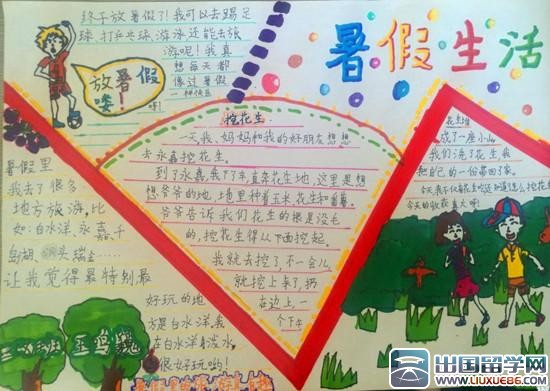 暑假生活
终于放暑假了!我可以去踢足
球、打乒乓球、游泳还能去旅
游呢!我真
想每天都
像过暑假
放暑假
喽!
挖花生
一天我、妈妈和我的好朋友想想
去永嘉挖花生。
到了永嘉我下了车直奔花生地,这里是想
想爷爷的地,地里种着玉米花生和番薯。
爷爷告诉我们花生的根是没毛
的,挖花生得从下面挖起。
我就去挖了不一会儿,
就挖上来了,扔
在边上,一
个下午
花生堆
成了一座小山
我们洗了花生,我
把自己的一份带回了家。
今天的收获真大啊!
暑假里
我去了很多
地方旅游,比
如:白水洋、永嘉、千
岛湖、头瑞金……
让我觉得最特别最
好玩的地
方是白水洋,我
在白水洋射波水,
很好好玩哟!
出国留学网
www.liuxue86.com